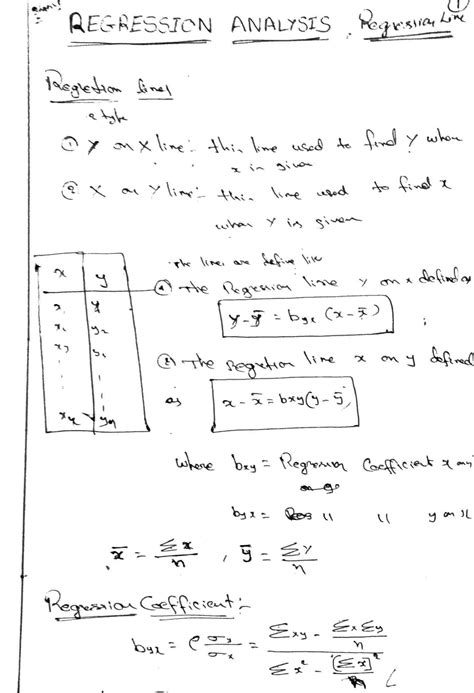 REGRESSION ANALYSIS Regression Line
1
Regression lines
2 type
① Y on X line:- this line used to find Y when
x is given
② X on Y line:- this line used to find x
when Y is given
the lines are define
x y
① The Regression line Y on x defined as
x₁ y₁
y - ȳ = byx (x - x̄) ;
x₂ y₂
x₃ y₃
② The regression line x on y defined
as x - x̄ = bxy(y - ȳ)
xn yn
where bxy = Regression Coefficient x on
byx = Reg 〃 〃 y on x
x̄ = Σx/n , ȳ = Σy/n
Regression Coefficient:-
byx = ρ σx/σx = (Σxy - ΣxΣy/n) / (Σx² - [Σx]²/n)